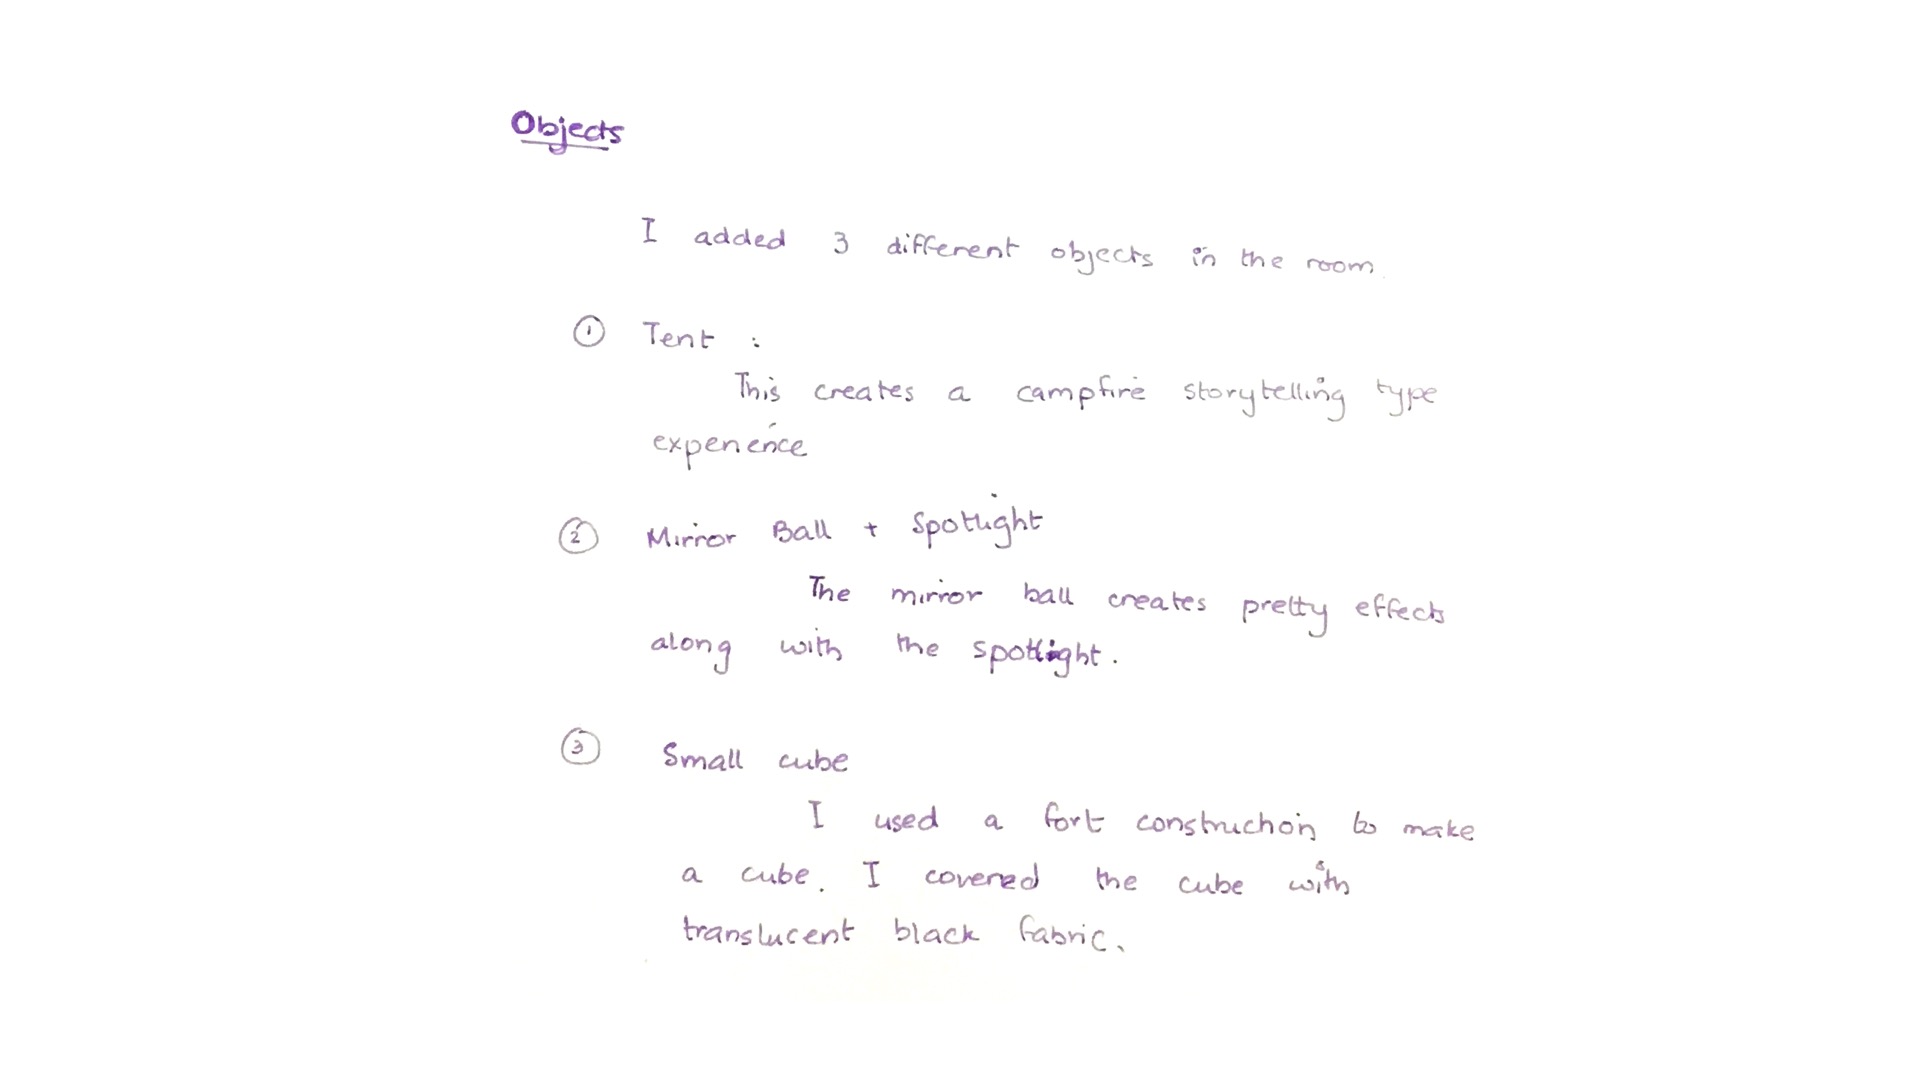 Objects
I added 3 different objects in the room
① Tent :
This creates a campfire storytelling type
experience
② Mirror Ball + Spotlight
The mirror ball creates pretty effects
along with the spotlight.
③ Small cube
I used a fort construction to make
a cube. I covered the cube with
translucent black fabric.